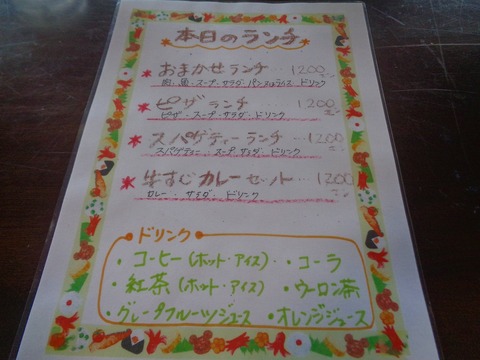 本日のランチ
* おまかせランチ … 1200エン
肉・魚・スープ・サラダ・パン又はライス ドリンク
* ピザランチ … 1200エン
ピザ・スープ・サラダ・ドリンク
* スパゲティーランチ … 1200エン
スパゲティー・スープ・サラダ・ドリンク
* 牛すじカレーセット … 1200エン
カレー・サラダ・ドリンク
ドリンク
・コーヒー(ホット・アイス) ・コーラ
・紅茶(ホット・アイス) ・ウーロン茶
・グレープフルーツジュース ・オレンジジュース